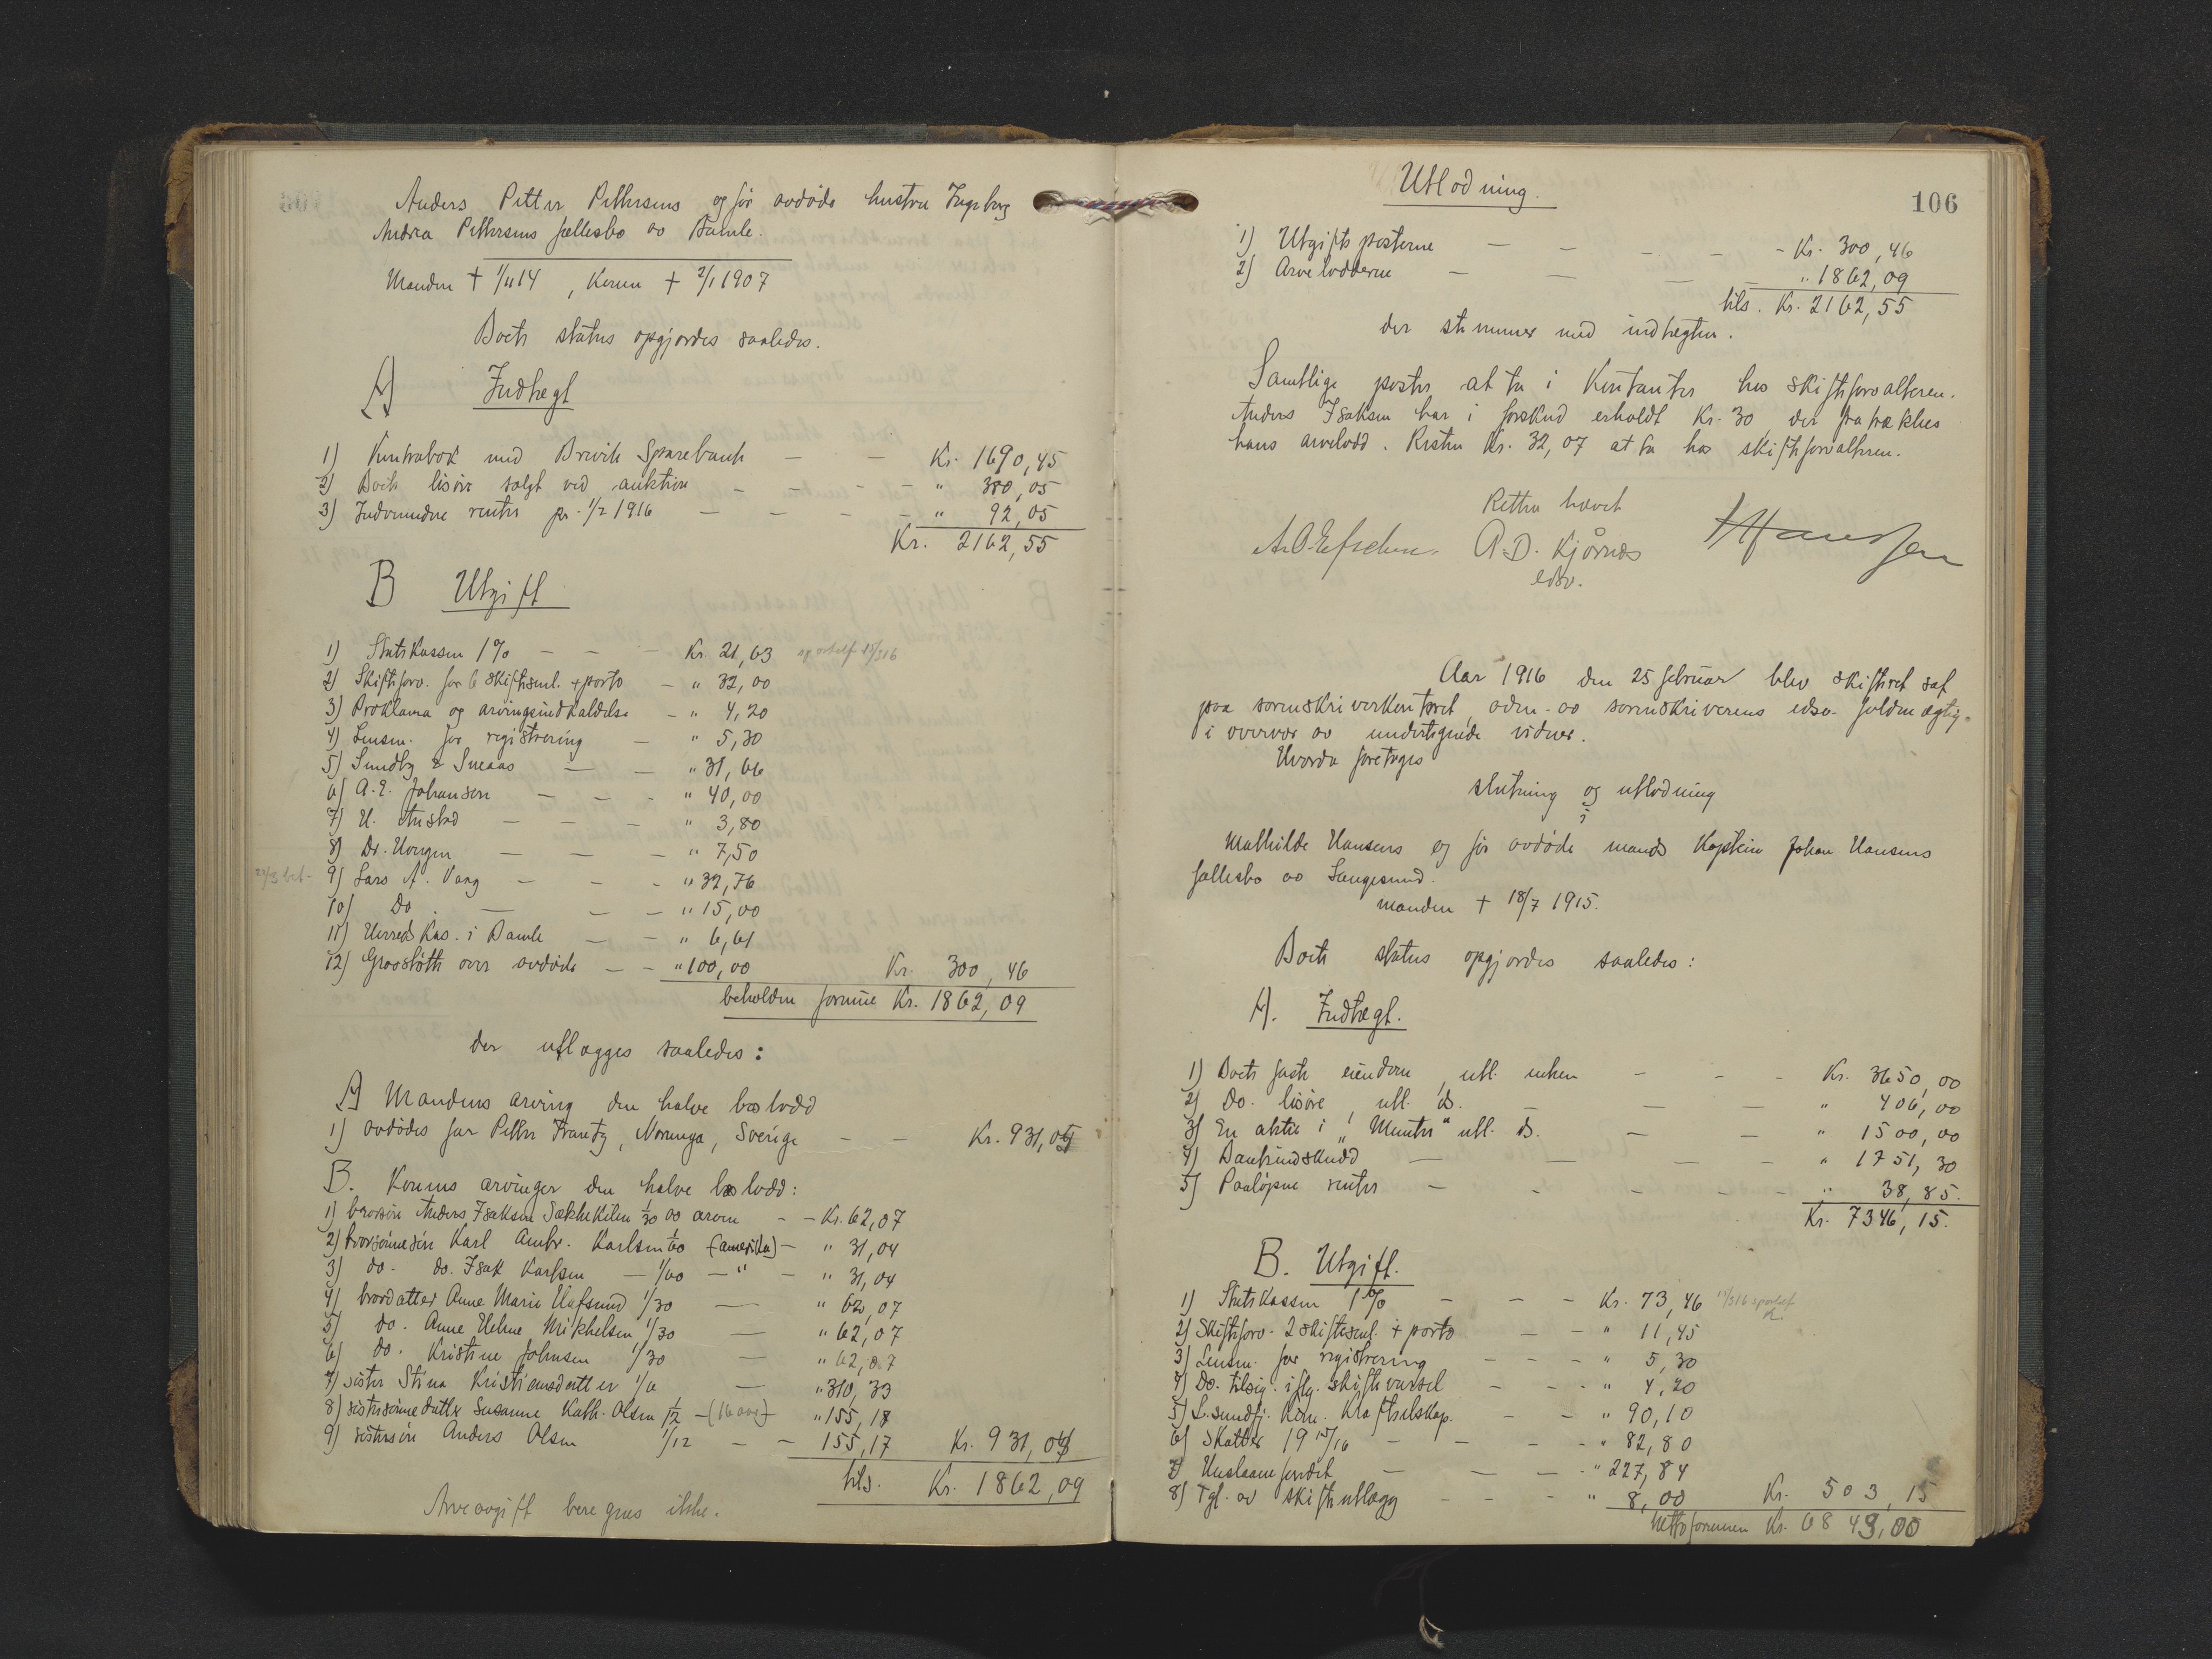 Anders Petter Pettersens og før avdøde hustru Ingeborg
Andrea Pettersens fællesbo av Bamle.
Manden † 1/11 14, Konen † 2/1 1907
Boets status opgjordes saaledes.
A) Indtægt
1) Kontrabok med Brevik Sparebank — — Kr. 1690,45
2) Boets løsøre solgt ved auktion — — — — " 380,05
3) Indvundne renter pr. 1/2 1916 — — — — " 92,05
Kr. 2162,55
B Utgift
1) Statskassen 1% — — — Kr. 21,63
2) Skifteforv. for 6 skiftesml. + porto — " 32,00
3) Proklama og arvingsindkaldelse — " 4,20
4) Lensm. for registrering — " 5,30
5) Sundby & Sneaas — — " 31,66
6) A. E. Johansen — — - " 40,00
7) U. Austad — — — " 3,80
8) Dr. Homgen — — — " 7,50
9) Lars A. Vang — — - " 32,76
10) Do. — — — " 15,00
11) Herredskas. i Bamle — — " 6,61
12) Gravstøtte over avdøde — — " 100,00 Kr. 300,46
beholden formue Kr. 1862,09
der utlægges saaledes:
A) Mandens arving den halve boslodd
1) avdødes far Petter Frantz, Norunga, Sverige — — Kr. 931,05
B. Konens arvinger den halve boslodd:
1) brorsøn Anders Isaksen Sækkekilen 1/30 av arven - - Kr. 62,07
2) brorsønnesøn Karl Ambr. Karlsen 1/60 (amerika) — " 31,04
3) do. do. Isak Karlsen — 1/60 — " — " 31,04
4) brordatter Anne Marie Hafsund 1/30 — " 62,07
5) do. Anne Helene Mikkelsen 1/30 — " 62,07
6) do. Kristine Johnsen 1/30 — " 62,07
7) søster Stina Kristiansdatter 1/6 — " 310,33
8) søstersønnedatter Susanne Kath. Olsen 1/12 — (16 aar) " 155,18
9) søstersøn Anders Olsen 1/12 - — 155,17 Kr. 931,04
tils. Kr. 1862,09
Arveavgift beregnes ikke.
106
Utlodning.
1) Utgiftsposterne — — - - - Kr. 300,46
2) Arvelodderne — — — — " 1862,09
tils. Kr. 2162,55
der stemmer med indtægten.
Samtlige poster at ta i Kontanter hos skifteforvalteren.
Anders Isaksen har i forskud erholdt Kr. 30 der fratrækkes
hans arvelodd. Resten Kr. 32,07 at ta hos skifteforvalteren.
Retten hævet
A. D. Kjørnæs
edsv.
Hanssen
Aar 1916 den 25 februar blev skifteret sat
paa sorenskriverkontoret, adm. av sorenskriverens edsv. fuldmægtig
i overvær av undertegnede vidner.
Hvorda foretoges
slutning og utlodning
i
Mathilde Hansens og før avdøde mands Kaptein Johan Hansens
fællesbo av Langesund.
manden † 18/7 1915.
Boets status opgjordes saaledes:
A. Indtægt.
1) Boets faste eiendom, utl. enken — — - Kr. 3650,00
2) Do. løsøre, utl. ds. — — — " 406,00
3) En aktie i "Munter" utl. ds. — — " 1500,00
4) Bankindskudd — — — — " 1751,30
5) Paaløpne renter — - - - — " 38,85.
Kr. 7346,15.
B. Utgift.
1) Statskassen 1% - - — Kr. 73,46
2) Skifteforv. 2 skiftesml. + porto — — " 11,45
3) Lensm. for registrering - - - " 5,30
4) Do. tilsig. iflg. skiftevarsel - - - " 4,20
5) L.sundfj. Kom. Kraftselskap. - - " 90,10
6) Skatter 19 15/16 — - - - " 82,80
7) — — — " 227,84
8) Tgl. av skifteutlægg - - - " 8,00 Kr. 503,15
Nettoformuen Kr. 6843,00